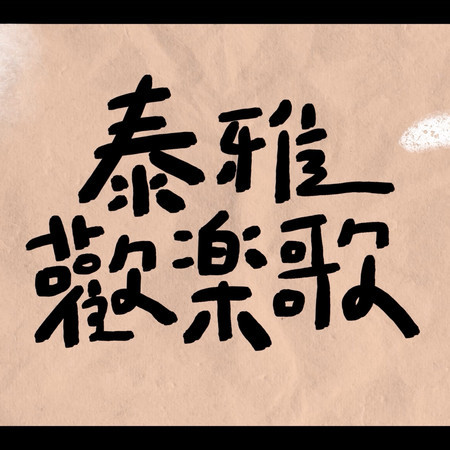 泰雅
歡楽歌